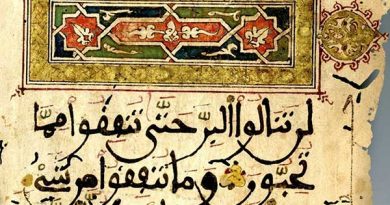 لَن تَنَالُوا الْبِرَّ حَتَّىٰ تُنفِقُوا مِمَّا
تُحِبُّونَ وَمَا تُنفِقُوا مِن شَيْءٍ